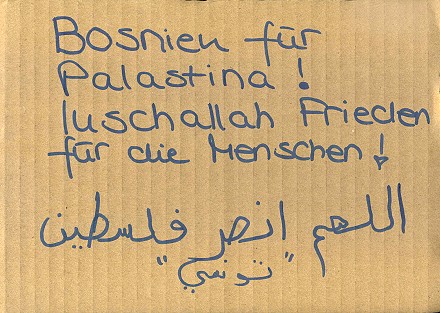 Bosnien für
Palastina!
Iuschallah Frieden
für die Menschen!
اللهم انصر فلسطين
"تونسي"